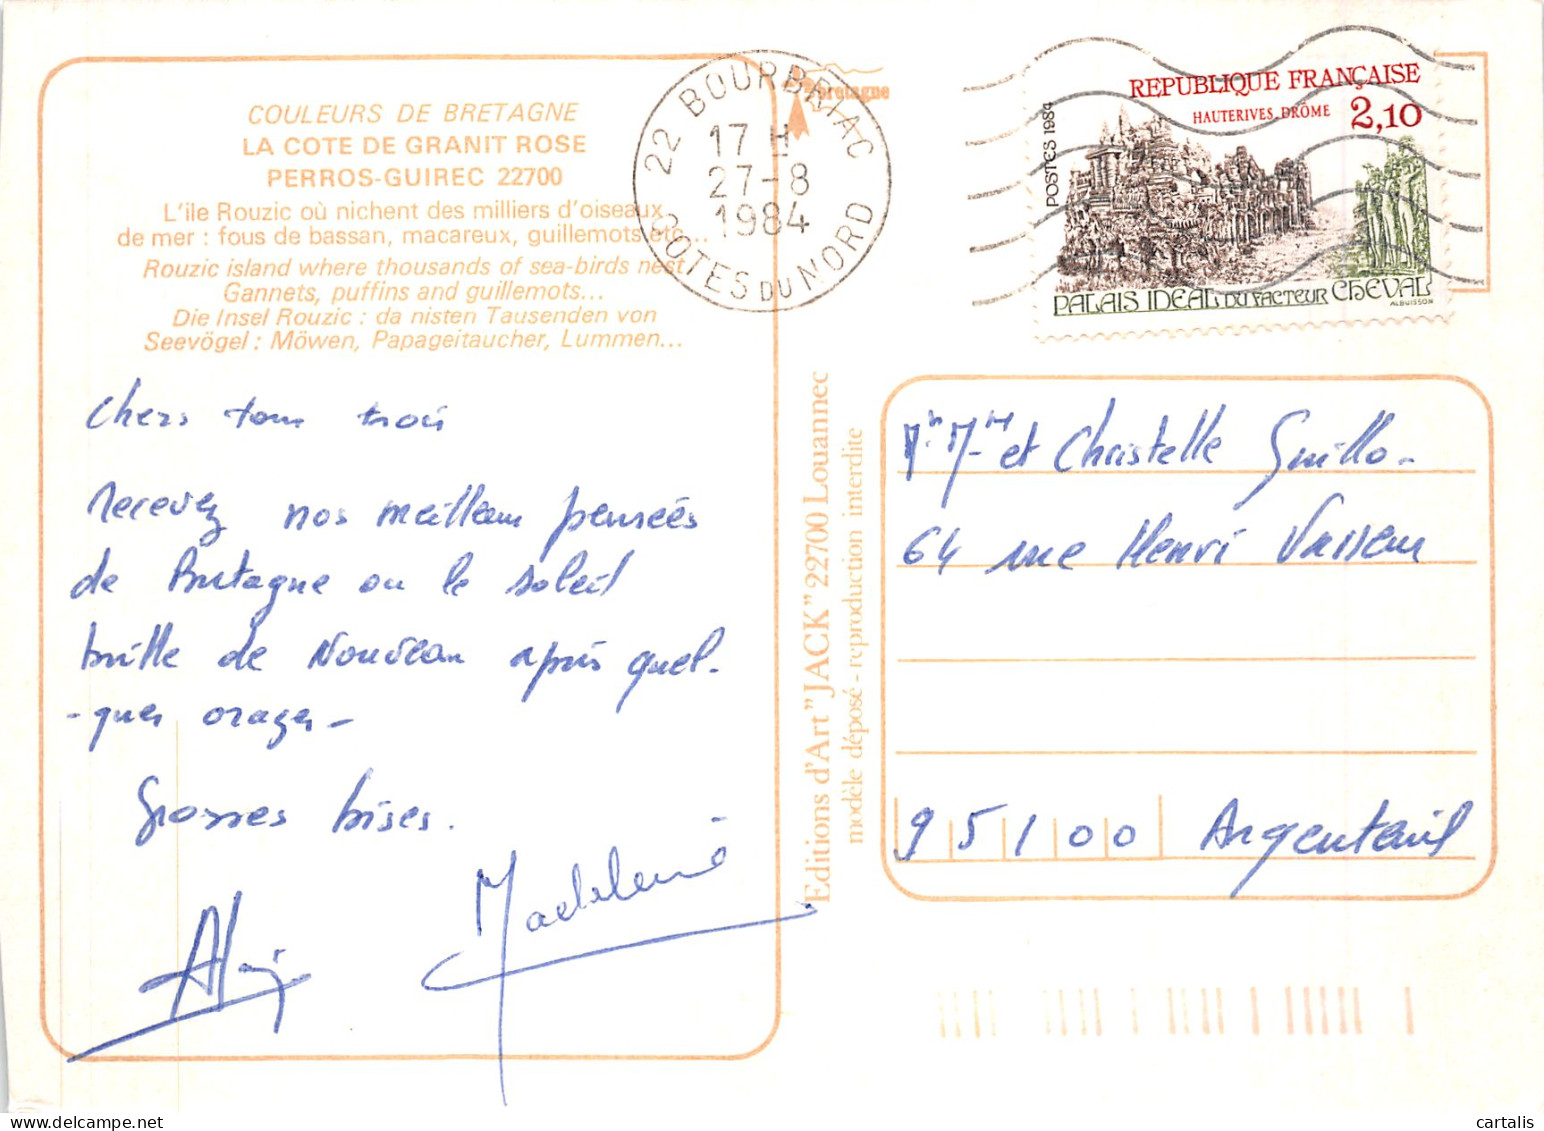 COULEURS DE BRETAGNE
LA COTE DE GRANIT ROSE
PERROS-GUIREC 22700
L'île Rouzic où nichent des milliers d'oiseaux
de mer : fous de bassan, macareux, guillemots etc...
Rouzic island where thousands of sea-birds nest
Gannets, puffins and guillemots...
Die Insel Rouzic : da nisten Tausenden von
Seevögel : Möwen, Papageitaucher, Lummen...
Chers tous trois
Recevez nos meilleurs pensées
de Bretagne ou le soleil
brille de Nouveau après quel-
-ques orages -
Grosses bises.
Alain
Madeleine
22 BOURBRIAC
17 H
27-8
1984
COTES DU NORD
bretagne
Editions d'Art "JACK" 22700 Louannec
modèle déposé - reproduction interdite
REPUBLIQUE FRANÇAISE
HAUTERIVES, DRÔME 2,10
POSTES 1984
PALAIS IDEAL DU FACTEUR CHEVAL
ALBUISSON
Mr Mme et Christelle Guillo -
64 rue Henri Vasseur
95100 Argenteuil
cartalis